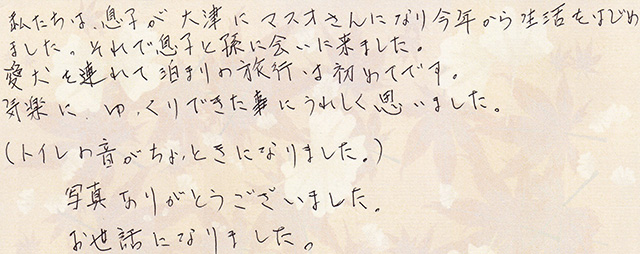 私たちは、息子が大津にマスオさんになり今年から生活をはじめ
ました。それで息子と孫に会いに来ました。
愛犬を連れて泊まりの旅行は初めてです。
気楽に、ゆっくりできた事にうれしく思いました。
(トイレの音がちょっときになりました。)
写真ありがとうございました。
お世話になりました。